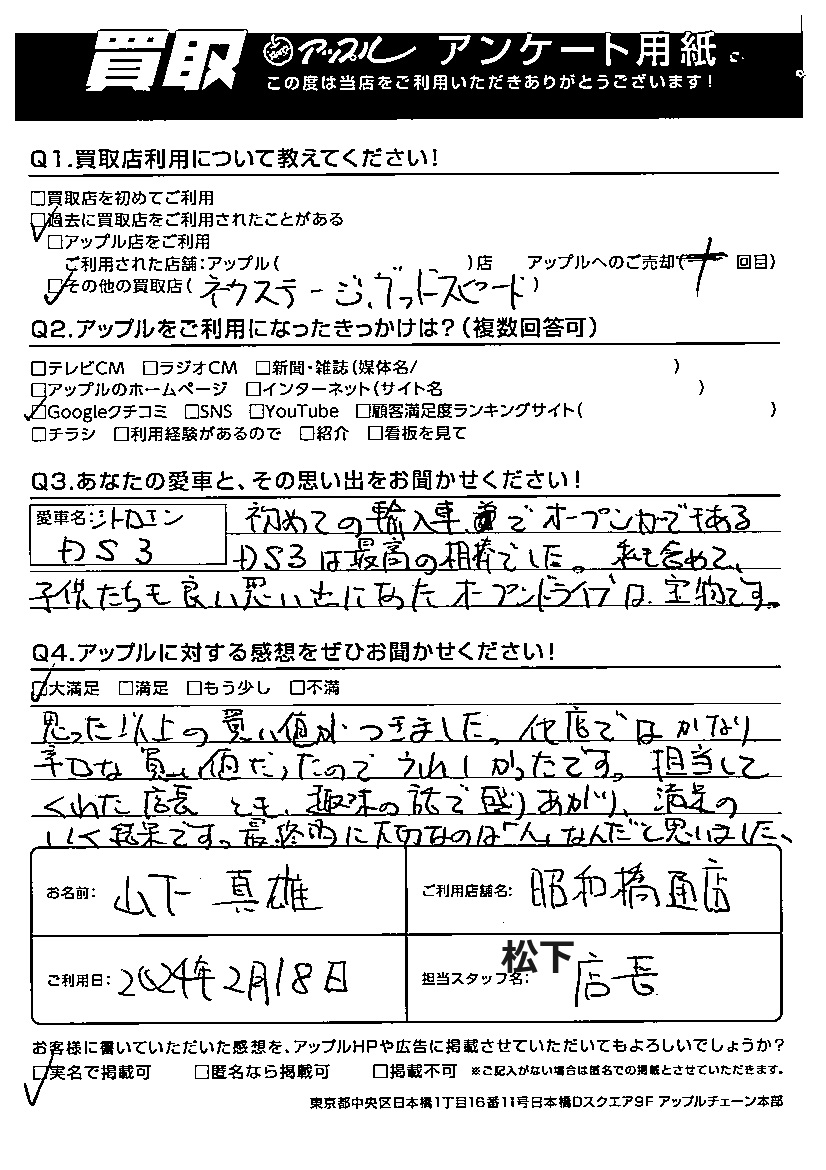 買取 アップル アンケート用紙
この度は当店をご利用いただきありがとうございます!
Q1.買取店利用について教えてください!
□買取店を初めてご利用
□過去に買取店をご利用されたことがある
□アップル店をご利用
ご利用された店舗:アップル( )店 アップルへのご売却( 回目)
□その他の買取店(ネクステージ、グッドスピード)
Q2.アップルをご利用になったきっかけは?(複数回答可)
□テレビCM □ラジオCM □新聞・雑誌(媒体名/ )
□アップルのホームページ □インターネット(サイト名 )
□Googleクチコミ □SNS □YouTube □顧客満足度ランキングサイト( )
□チラシ □利用経験があるので □紹介 □看板を見て
Q3.あなたの愛車と、その思い出をお聞かせください!
愛車名:シトロエン
DS3
初めての輸入車、でオープンカーでもある
DS3は最高の相棒でした。私も含めて、
子供たちも良い思い出になったオープンドライブは宝物です。
Q4.アップルに対する感想をぜひお聞かせください!
□大満足 □満足 □もう少し □不満
思った以上の買い値がつきました。他店ではかなり
辛口な買い値だったのでうれしかったです。担当して
くれた店長とも、趣味の話で盛りあがり、満足の
いく結果です。最終的に大切なのは「人」なんだと思いました。
お名前: 山下 真雄
ご利用店舗名: 昭和橋通店
ご利用日: 2024年2月18日
担当スタッフ名: 松下 店長
お客様に書いていただいた感想を、アップルHPや広告に掲載させていただいてもよろしいでしょうか?
□実名で掲載可 □匿名なら掲載可 □掲載不可 ※ご記入がない場合は匿名での掲載とさせていただきます。
東京都中央区日本橋1丁目16番11号日本橋Dスクエア9F アップルチェーン本部